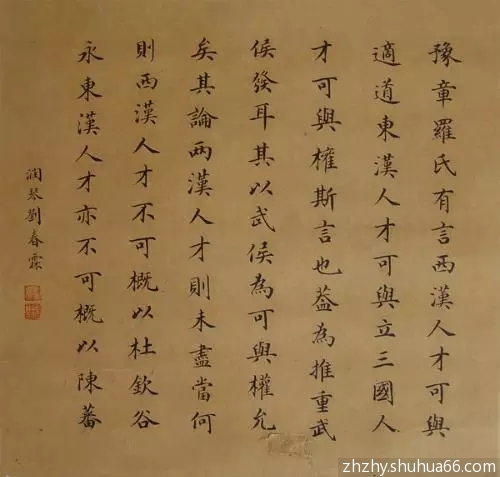 豫章羅氏有言西漢人才可與
適道東漢人才可與立三國人
才可與權斯言也葢為推重武
侯發耳其以武侯為可與權允
矣其論兩漢人才則未盡當何
則西漢人才不可概以杜欽谷
永東漢人才亦不可概以陳蕃
潤琴劉春霖
zhzhy.shuhua66.com